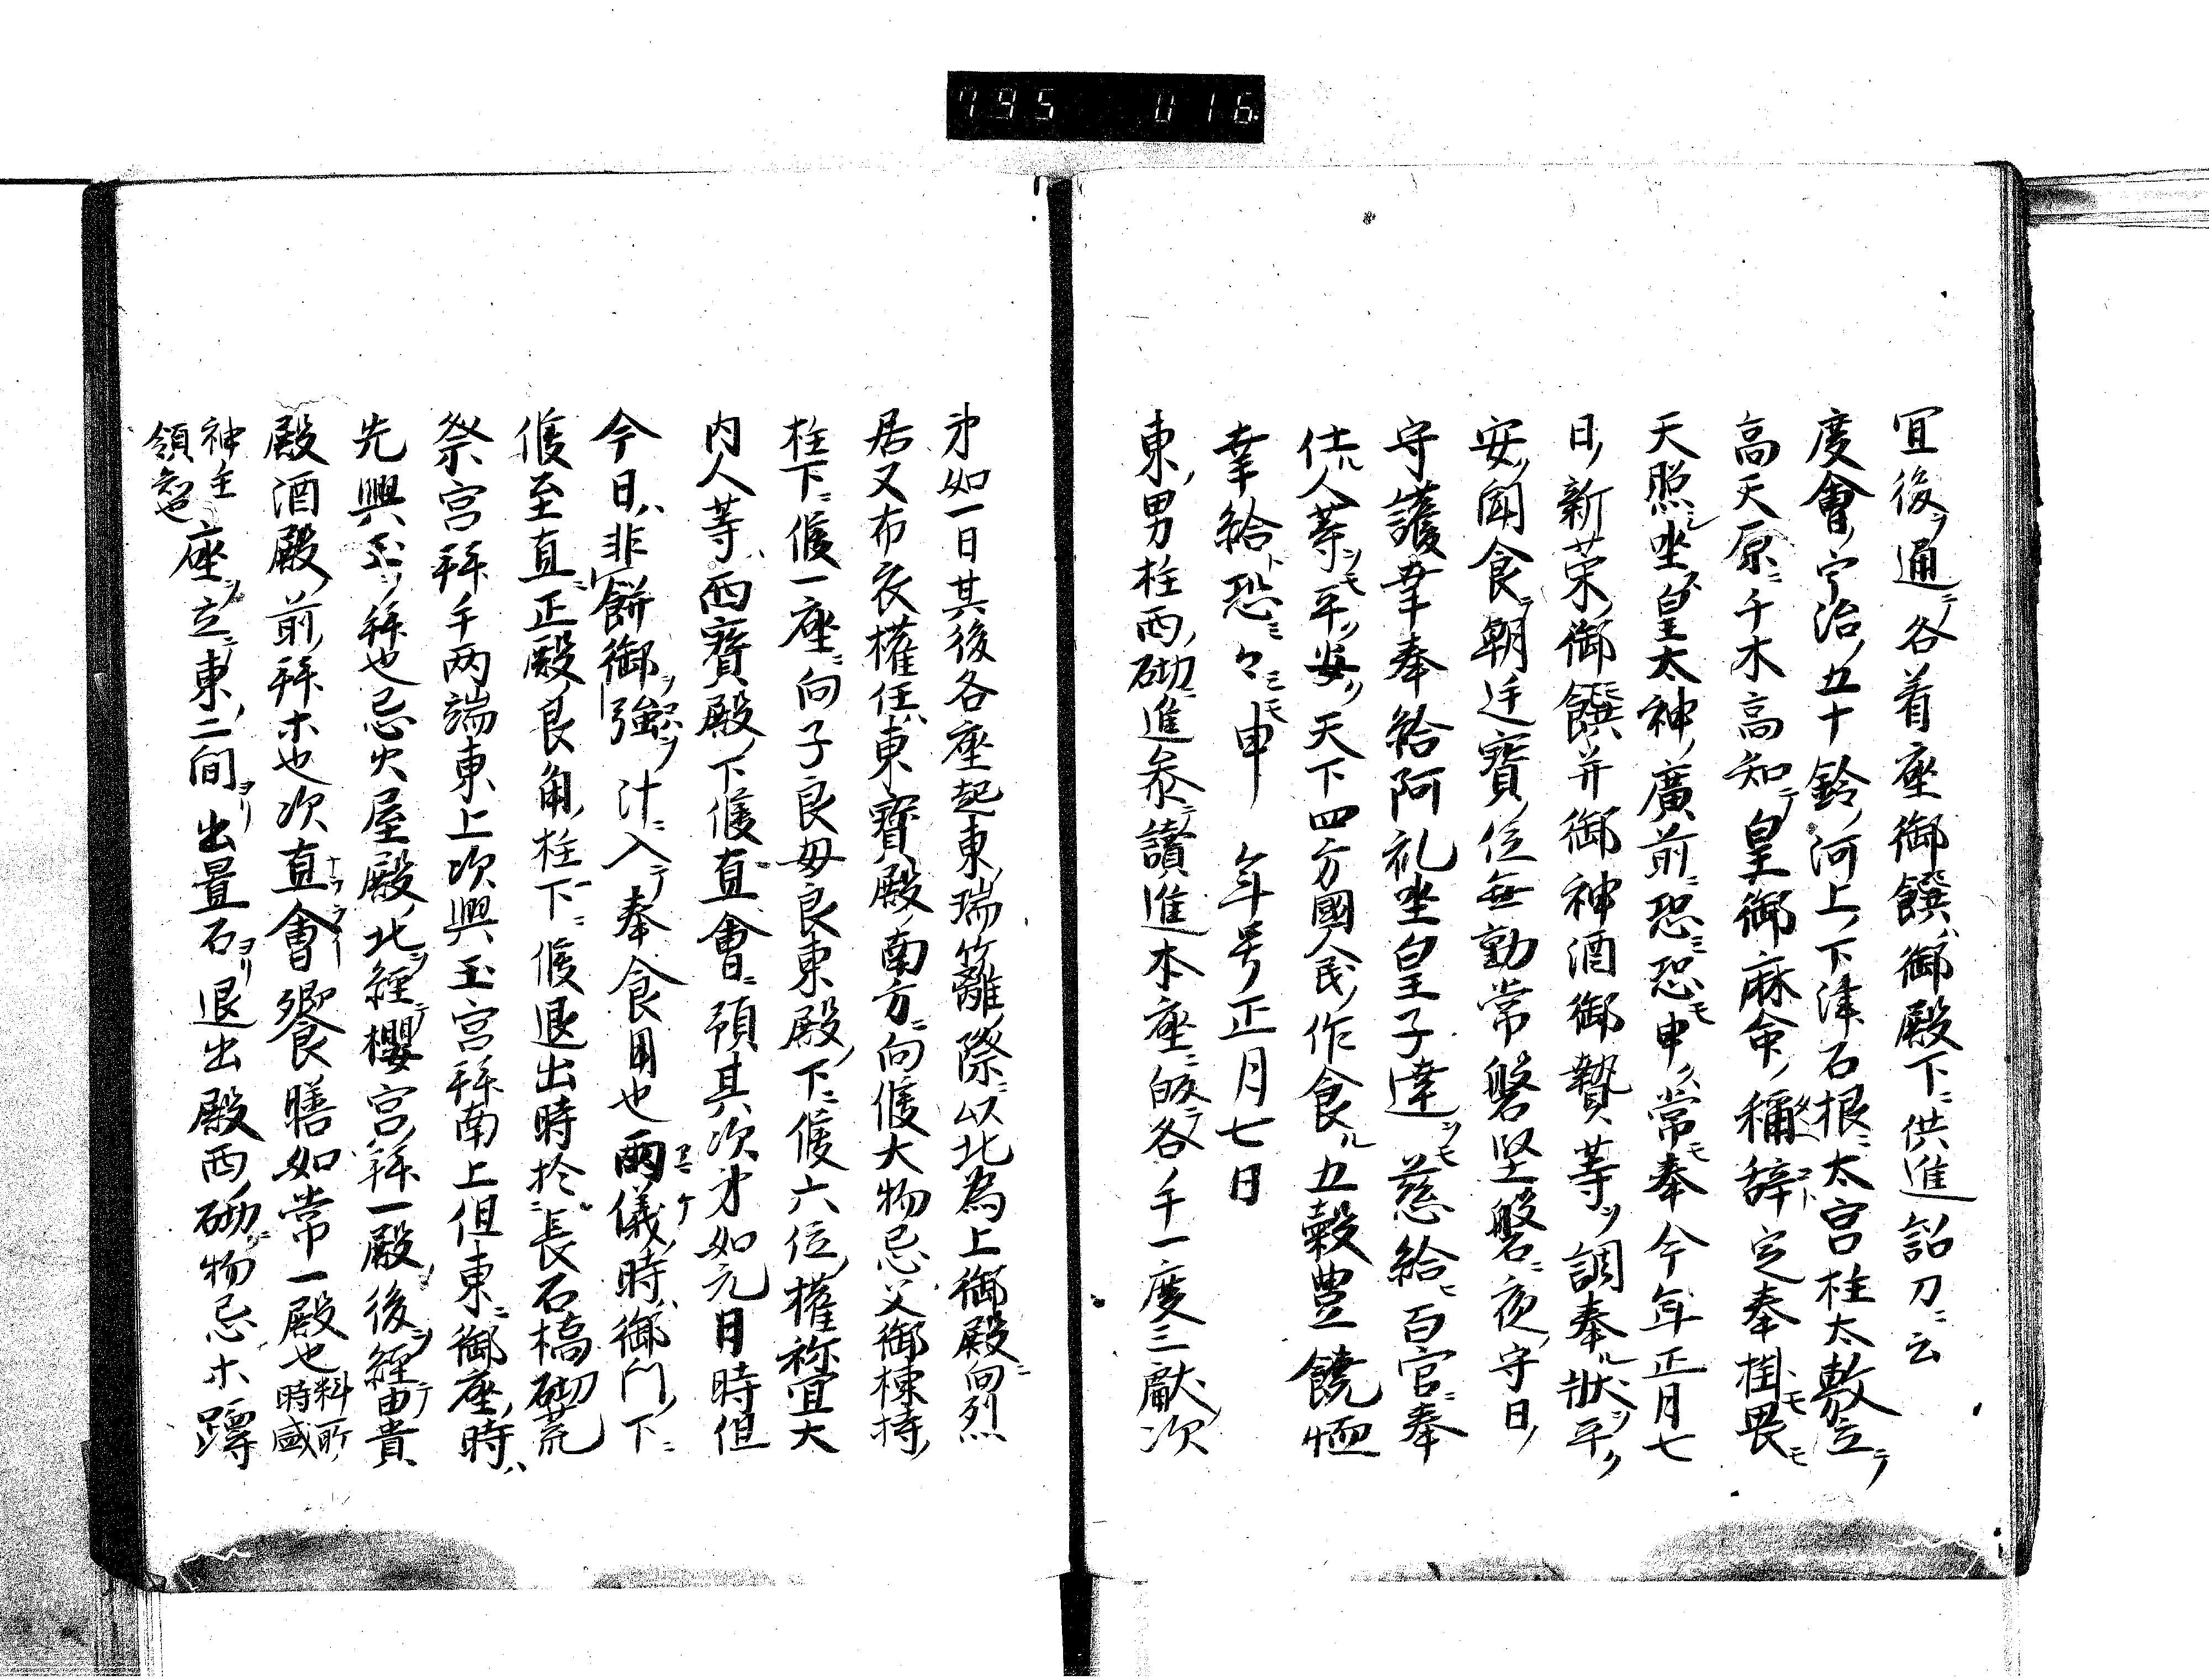 795 016
冝後ヲ通テ各着座御饌ハ御殿下ニ供進詔刀ニ云
度會ノ宇治ノ五十鈴ノ河上ノ下津石根ニ太宮柱太敷立テ
高天原ニ千木高知テ皇御麻命ノ稱辞定奉掛モ畏モ
天照シ坐ス皇太神ノ廣前ニ恐ミ恐モ申ク常モ奉今年正月七
日ノ新菜ノ御饌并御神酒御贄等ヲ調奉ル状ヲ平ク
安ク聞食テ朝廷寳位無動常磐堅磐ニ夜ノ守日ノ
守護幸奉給阿礼坐皇子達ヲモ慈給ヒ百官ニ奉
仕ル人等ヲモ平ク安ク天下四方國人民ノ作食ル五穀豊饒恤
幸給ト恐ミ々ミモ申 年号正月七日
東ノ男柱西ノ砌ニ進参テ讀進本座ニ皈テ各手一度三献次
第如一日其後各座起東ノ瑞籬ノ際ニ以北為上御殿ニ向烈
居又布衣權任ハ東寳殿ノ南方ニ向候大物忌父御棟持ノ
柱下ニ候一座ニ向子良母良東殿ノ下ニ候六位權祢宜大
内人等ハ西寳殿ノ下候直會ニ預其次第如元日時但
今日ハ非餅御ノ強ヲ汁ニ入テ奉食用也雨儀時ハ御門ノ下ニ
候至直ニ正殿ノ艮角ノ柱下ニ候退出時於ニ長石橋砌荒
祭宮拝手両端東上次興玉宮拝南上但東ニ御座ノ時ハ
先興玉ヲ拝也忌火屋殿ノ北ヲ經テ櫻宮ノ拝一殿ノ後ヲ經テ由貴
殿酒殿ノ前ノ拝ホ也次直會饗膳如常一殿也料所時盛
神主領知也座ヲ立テ東ノ二間ヨリ出畳石ヨリ退出殿西ノ砌ニ物忌ホ蹲